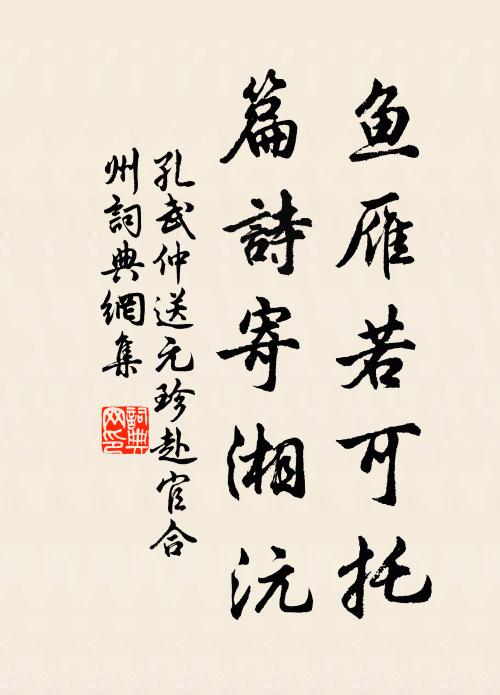 鱼雁若可托
篇詩寄湘沅
孔武仲送元珍赴官合
州詞典網集
詞典
网印